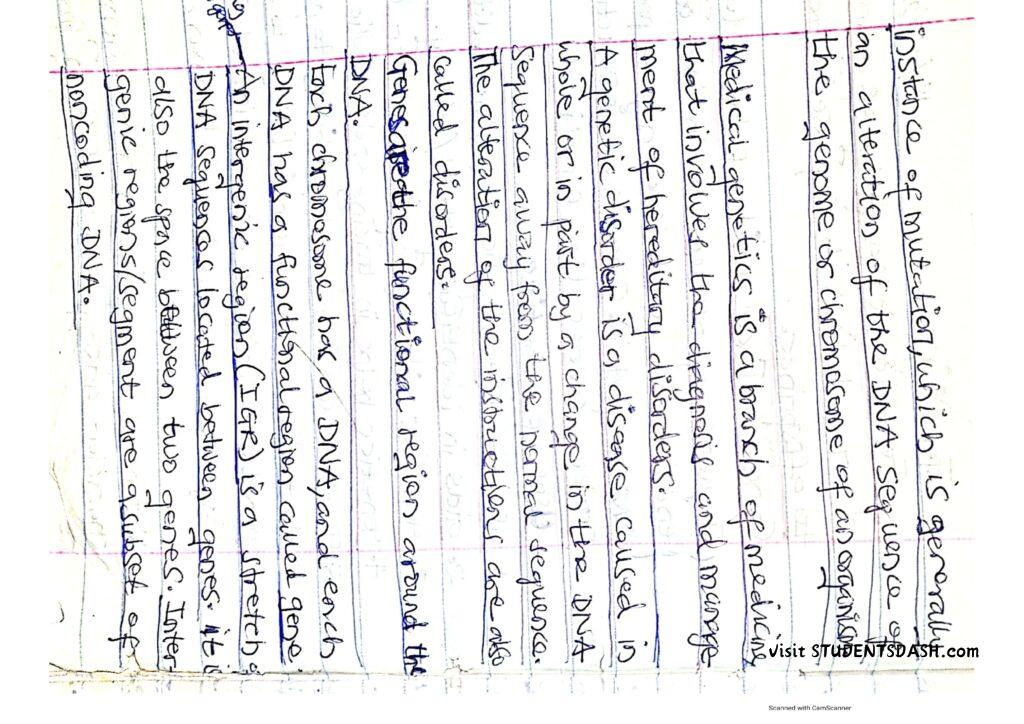 instance of mutation, which is generally
an alteration of the DNA sequence of
the genome or chromosome of an organism
Medical genetics is a branch of medicine
that involves the diagnosis and manage
ment of hereditary disorders.
A genetic disorder is a disease caused in
whole or in part by a change in the DNA
sequence away from the normal sequence.
The alteration of the instruction are also
called disorders.
Genes are the functional region around the
DNA.
Each chromosome has a DNA, and each
DNA has a functional region called gene.
An intergenic region (IGR) is a stretch of
DNA sequences located between genes. it is
also the space between two genes. Inter-
genic regions/segment are a subset of
noncoding DNA.
Visit STUDENTSDASH.com
Scanned with CamScanner